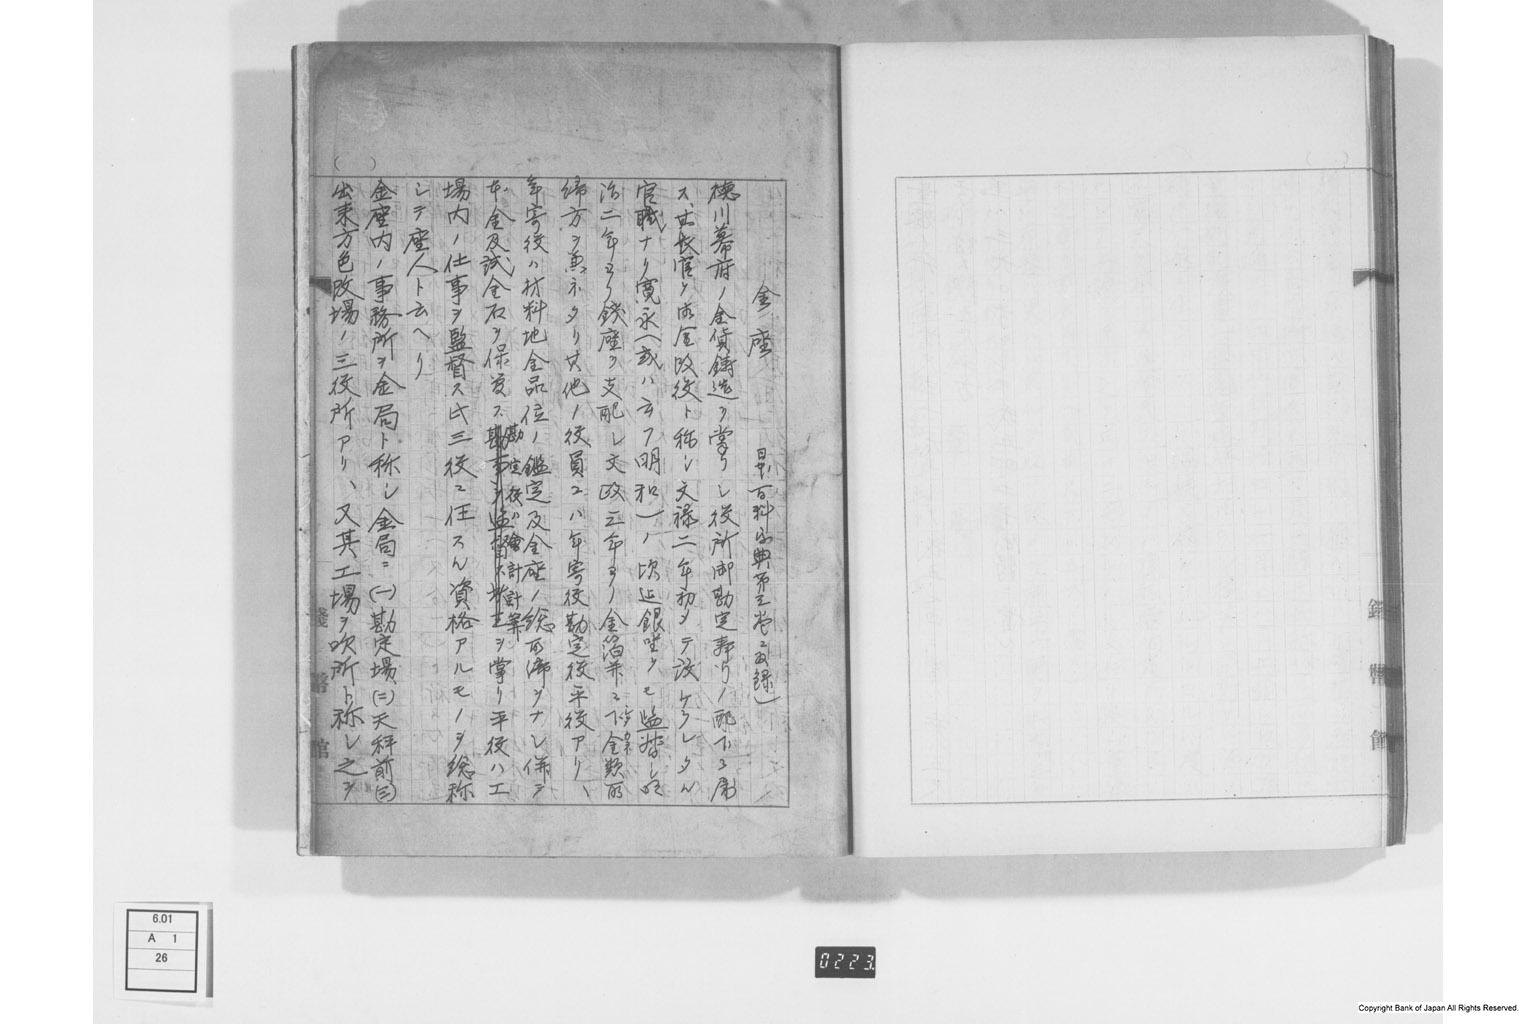 金座
日本百科辞典第三巻ニ収録）
徳川幕府ノ金貨鋳造ヲ掌リシ役所御勘定奉行ノ配下ニ属
ス、其長官ヲ御金改役ト称シ文禄二年初メテ設ケラレタル
官職ナリ寛永（或ハ云フ明和）ノ頃迄銀座ヲモ監督シ明
治二年ヨリ銭座ヲ支配シ文政三年ヨリ金箔并ニ下金類取
締方ヲ兼ネタリ其他ノ役員ニハ年寄役勘定役平役アリ、
年寄役ハ材料地金品位ノ鑑定及金座ノ総取締ヲナシ併テ
本金及試金石ヲ保管ス
勘定役ハ会計計算
ヲ掌リ平役ハ工
場内ノ仕事ヲ監督ス此三役ニ任スル資格アルモノヲ総称
シテ座人ト云ヘリ
金座内ノ事務所ヲ金局ト称シ金局ニ(一)勘定場(二)天秤前(三)
出来方色改場ノ三役所アリ、又其工場ヲ吹所ト称シ之ヲ
銭幣館
6.01
A 1
26
0223
Copyright Bank of Japan All Rights Reserved.